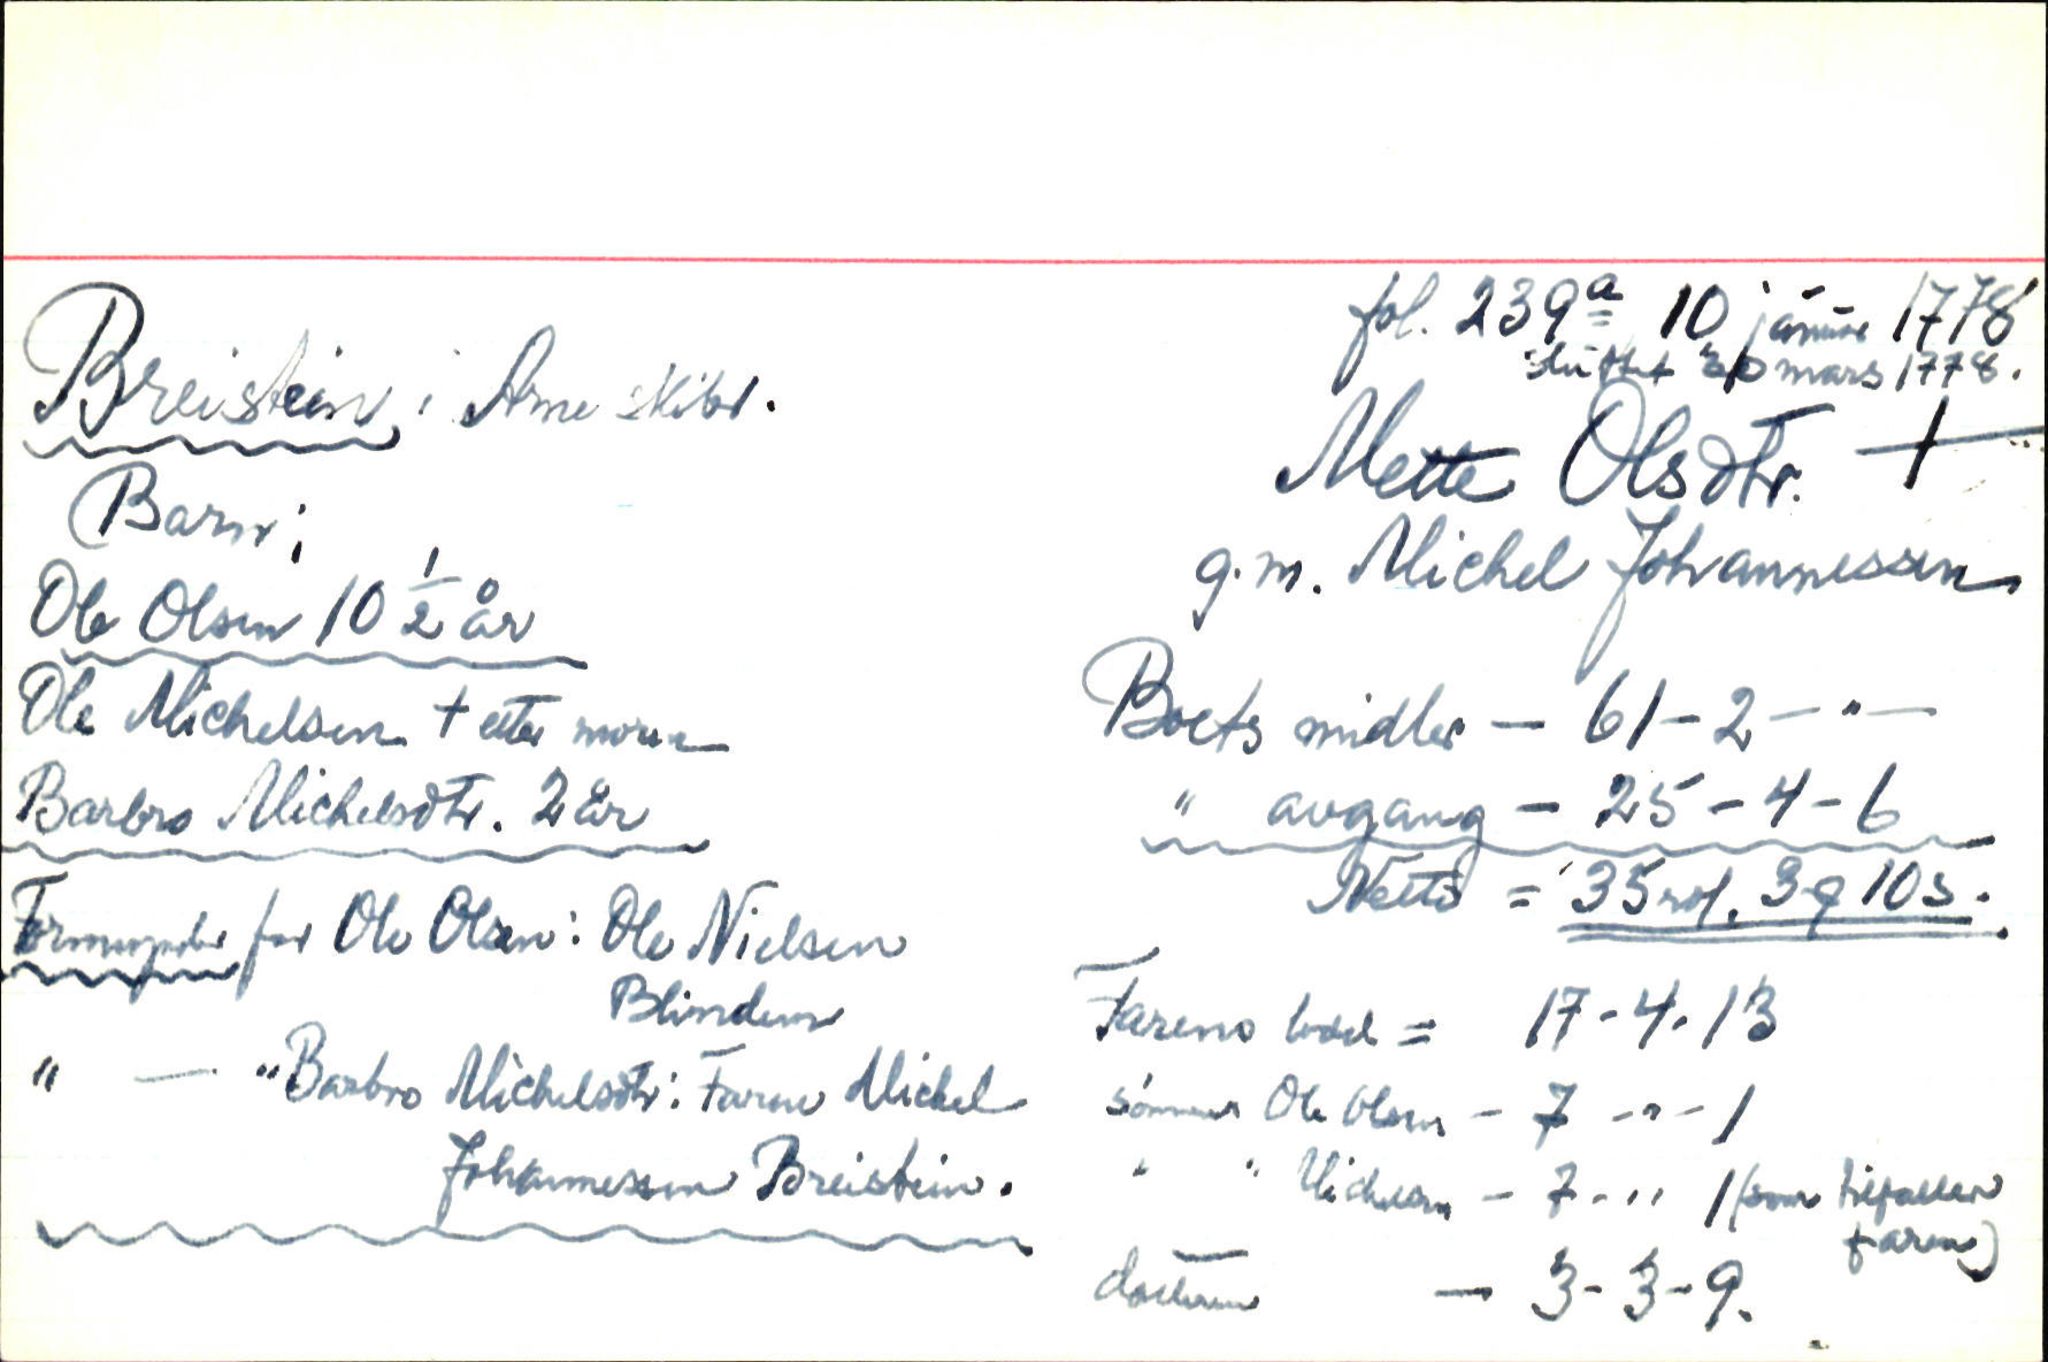 fol. 239a 10 januar 1778
sluttet 30 mars 1778.
Breistein; Arne skibr.
Mette Olsdtr. +
g.m. Michel Johannessen
Barn;
Ole Olsen 10 1/2 år
Ole Michelsen + etter moren
Barbro Michelsdtr. 2 år
Formynder for Ole Olsen: Ole Nielsen
Blindem
" — " Barbro Michelsdtr: Faren Michel
Johannessen Breistein.
Boets midler — 61 - 2 — " —
" avgang — 25 - 4 - 6
Netto = 35 rd. 3 q 10 s.
Farens lodd = 17 - 4 - 13
sönnen Ole Olsen - 7 - " - 1
" " Michelsen - 7 - " 1 (som tilfaller
faren)
datteren — 3 - 3 - 9.